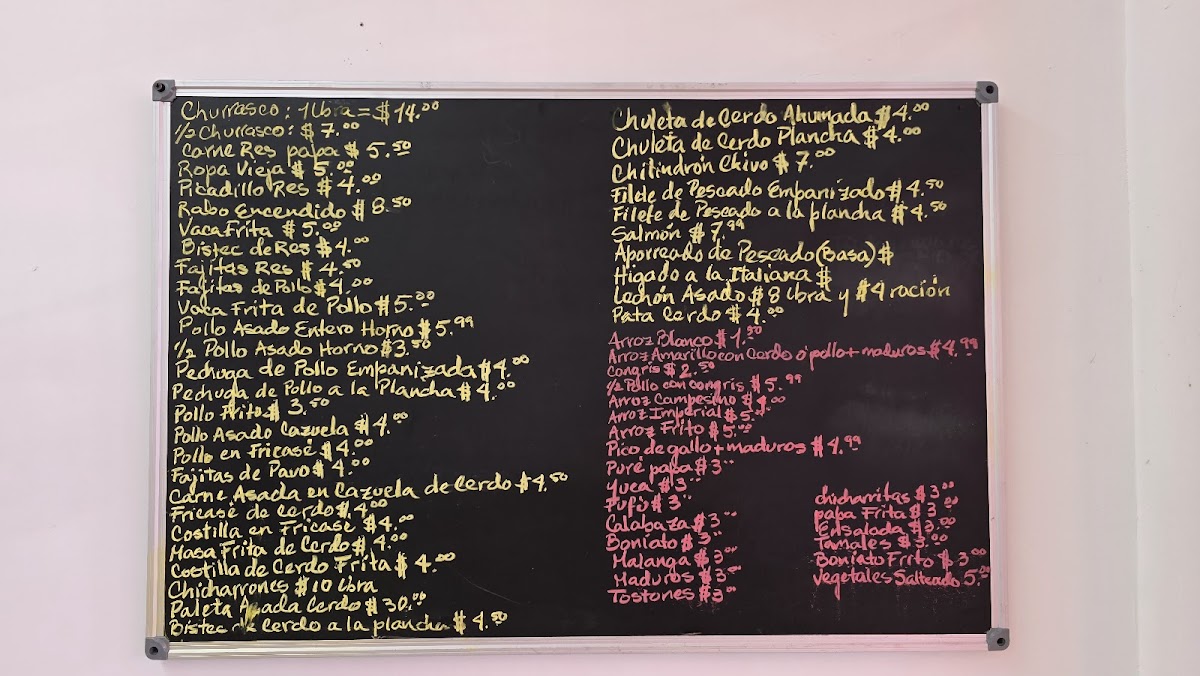 Churrasco: 1 Libra = $14.00
1/2 Churrasco: $7.00
Carne Res papa $5.50
Ropa Vieja $5.00
Picadillo Res $4.00
Rabo Encendido $8.50
Vaca Frita $5.00
Bistec de Res $4.00
Fajitas Res $4.50
Fajitas de Pollo $4.00
Vaca Frita de Pollo $5.00
Pollo Asado Entero Horno $5.99
1/2 Pollo Asado Horno $3.50
Pechuga de Pollo Empanizada $4.00
Pechuga de Pollo a la Plancha $4.00
Pollo Frito $3.50
Pollo Asado Cazuela $4.00
Pollo en Fricasé $4.00
Fajitas de Pavo $4.00
Carne Asada en Cazuela de Cerdo $4.50
Fricasé de Cerdo $4.00
Costilla en Fricasé $4.00
Masa Frita de Cerdo $4.00
Costilla de Cerdo Frita $4.00
Chicharrones $10 Libra
Paleta Asada Cerdo $30.00
Bistec de Cerdo a la plancha $4.50
Chuleta de Cerdo Ahumada $4.00
Chuleta de Cerdo Plancha $4.00
Chilindrón Chivo $7.00
Filete de Pescado Empanizado $4.50
Filete de Pescado a la plancha $4.50
Salmón $7.99
Aporreado de Pescado (Basa) $
Higado a la Italiana $
Lechón Asado $8 Libra y $4 ración
Pata Cerdo $4.00
Arroz Blanco $1.50
Arroz Amarillo con Cerdo ó pollo + maduros $4.99
Congris $2.50
1/2 Pollo con congris $5.99
Arroz Campesino $4.00
Arroz Imperial $5.00
Arroz Frito $5.00
Pico de gallo + maduros $4.99
Puré papa $3.00
Yuca $3.00
Fufú $3.00
Calabaza $3.00
Boniato $3.00
Malanga $3.00
Maduros $3.00
Tostones $3.00
chicharritas $3.00
papa Frita $3.00
Ensalada $3.00
Tamales $3.00
Boniato Frito $3.00
vegetales Salteado 5.00